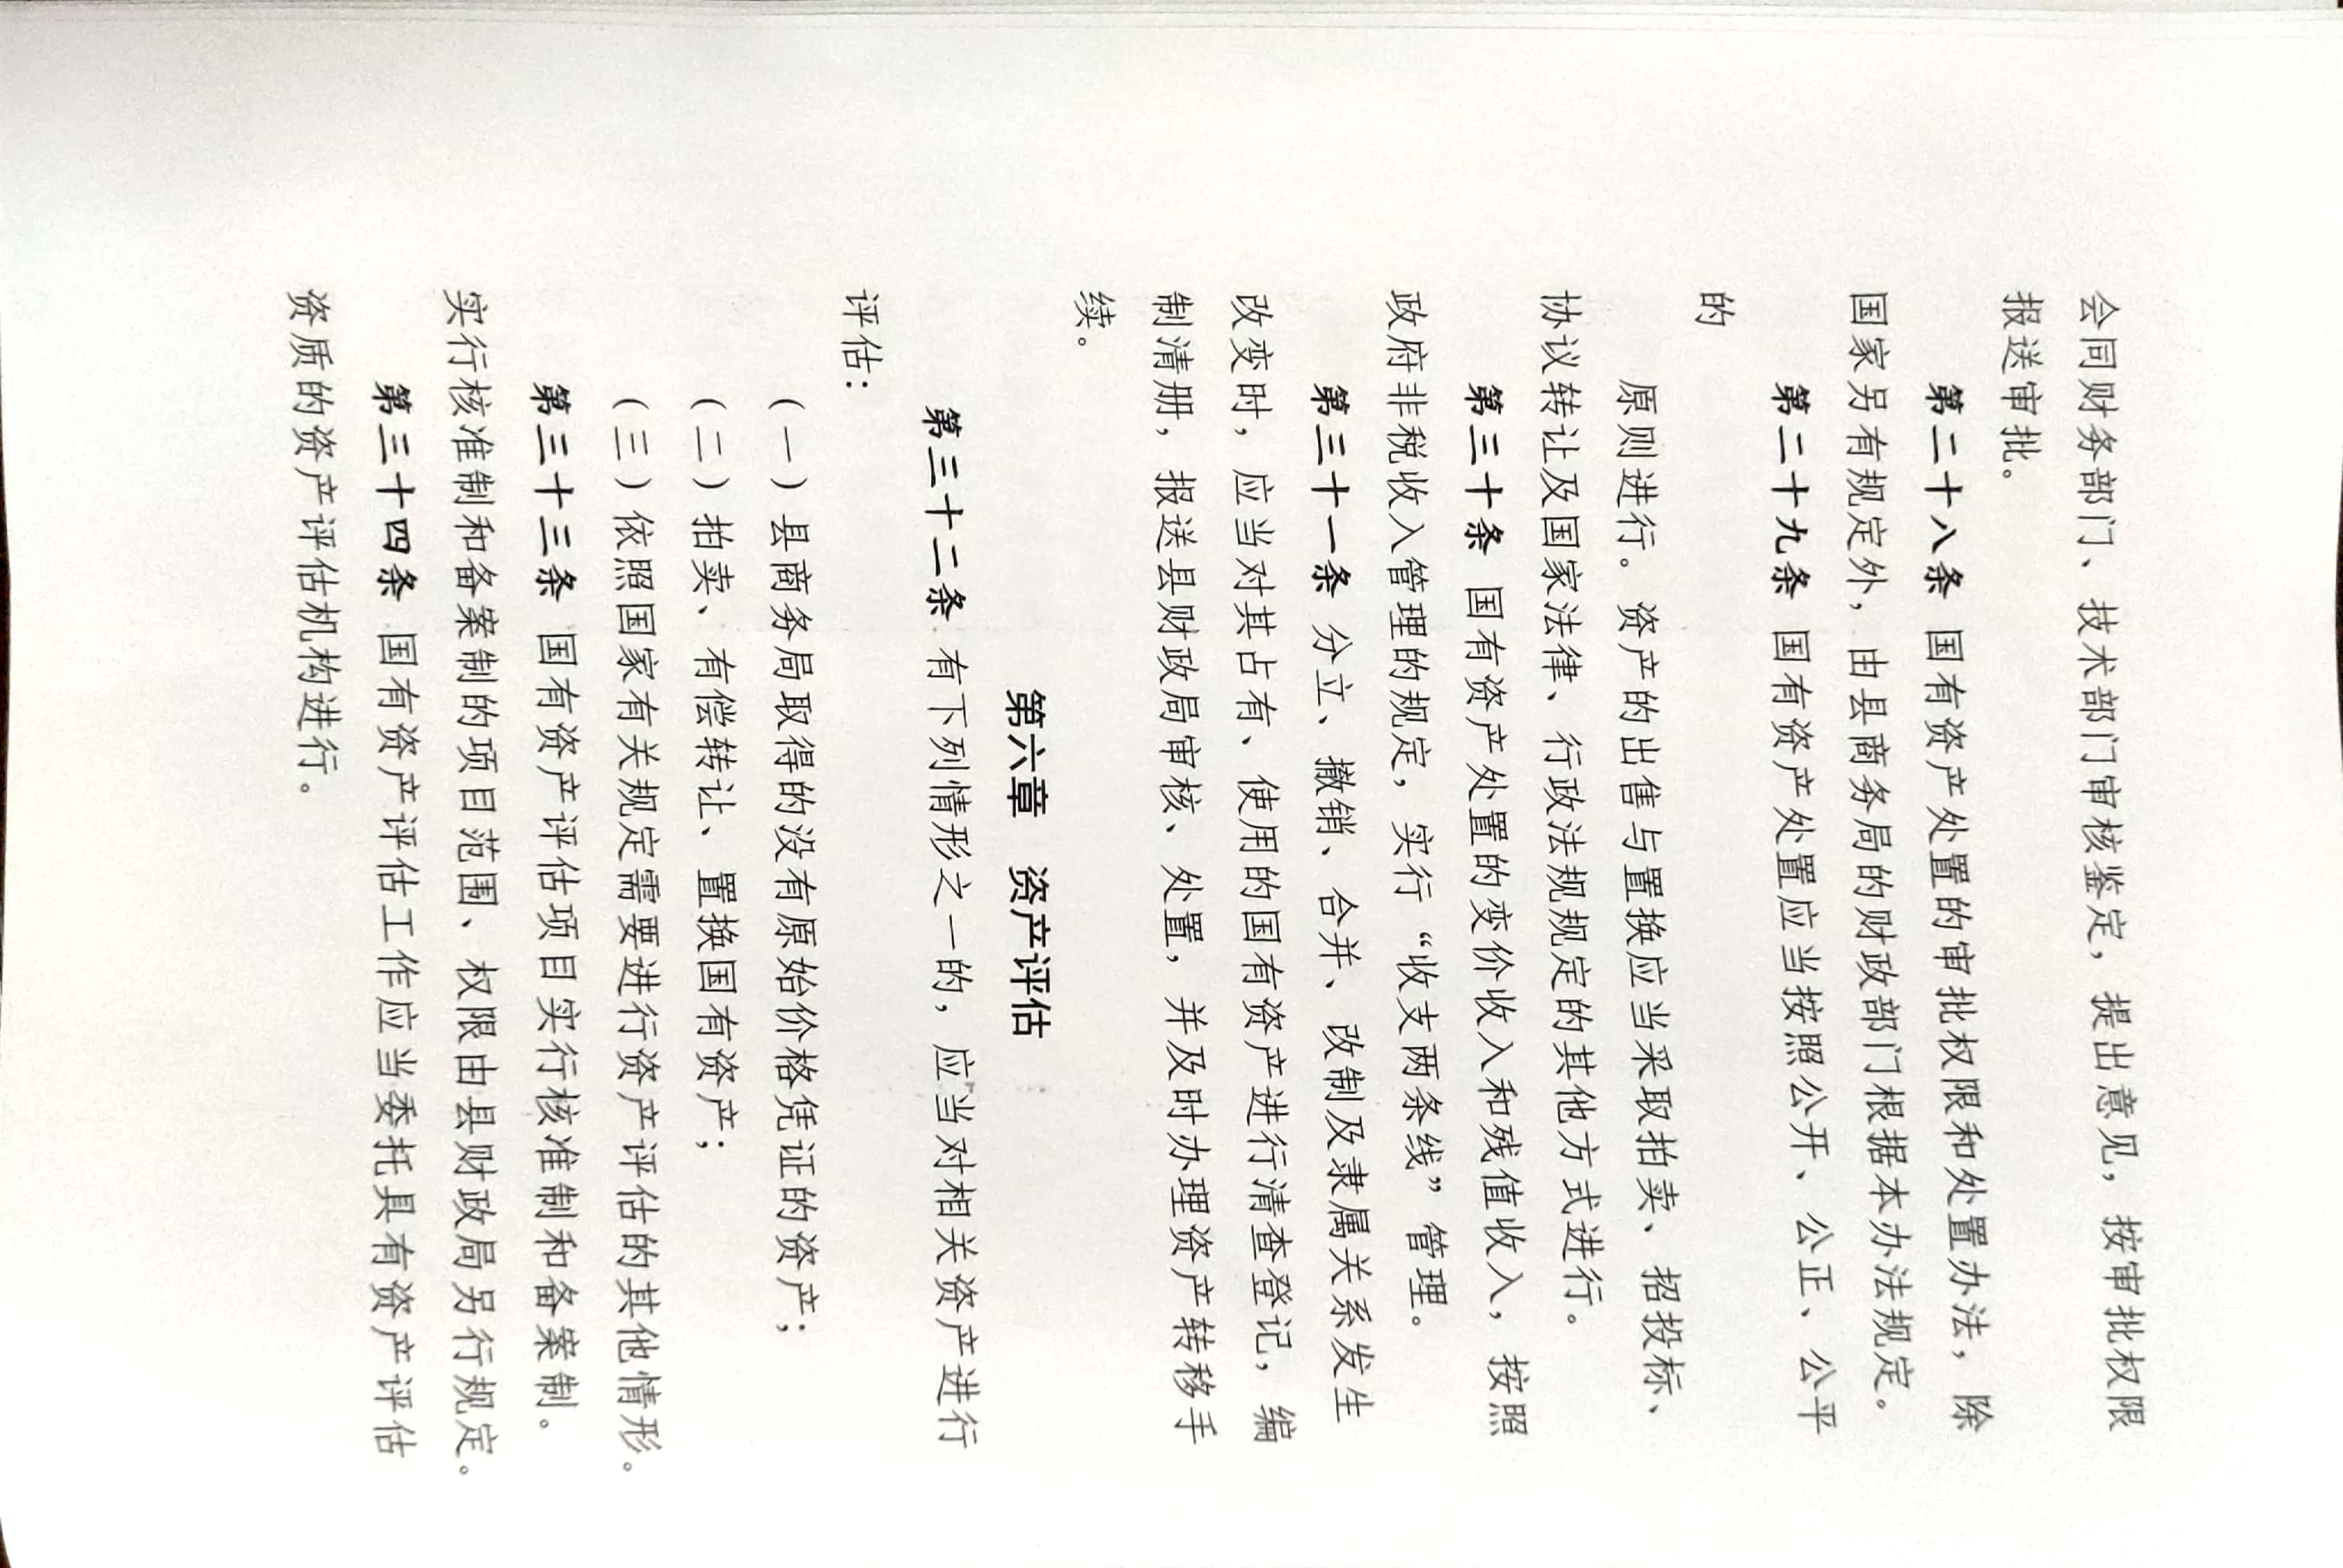 会同财务部门、技术部门审核鉴定，提出意见，按审批权限
报送审批。
第二十八条 国有资产处置的审批权限和处置办法，除
国家另有规定外，由县商务局的财政部门根据本办法规定。
第二十九条 国有资产处置应当按照公开、公正、公平
的
原则进行。资产的出售与置换应当采取拍卖、招投标、
协议转让及国家法律、行政法规规定的其他方式进行。
第三十条 国有资产处置的变价收入和残值收入，按照
政府非税收入管理的规定，实行“收支两条线”管理。
第三十一条 分立、撤销、合并、改制及隶属关系发生
改变时，应当对其占有、使用的国有资产进行清查登记，编
制清册，报送县财政局审核、处置，并及时办理资产转移手
续。
第六章 资产评估
第三十二条 有下列情形之一的，应当对相关资产进行
评估：
（一）县商务局取得的没有原始价格凭证的资产；
（二）拍卖、有偿转让、置换国有资产；
（三）依照国家有关规定需要进行资产评估的其他情形。
第三十三条 国有资产评估项目实行核准制和备案制。
实行核准制和备案制的项目范围、权限由县财政局另行规定。
第三十四条 国有资产评估工作应当委托具有资产评估
资质的资产评估机构进行。